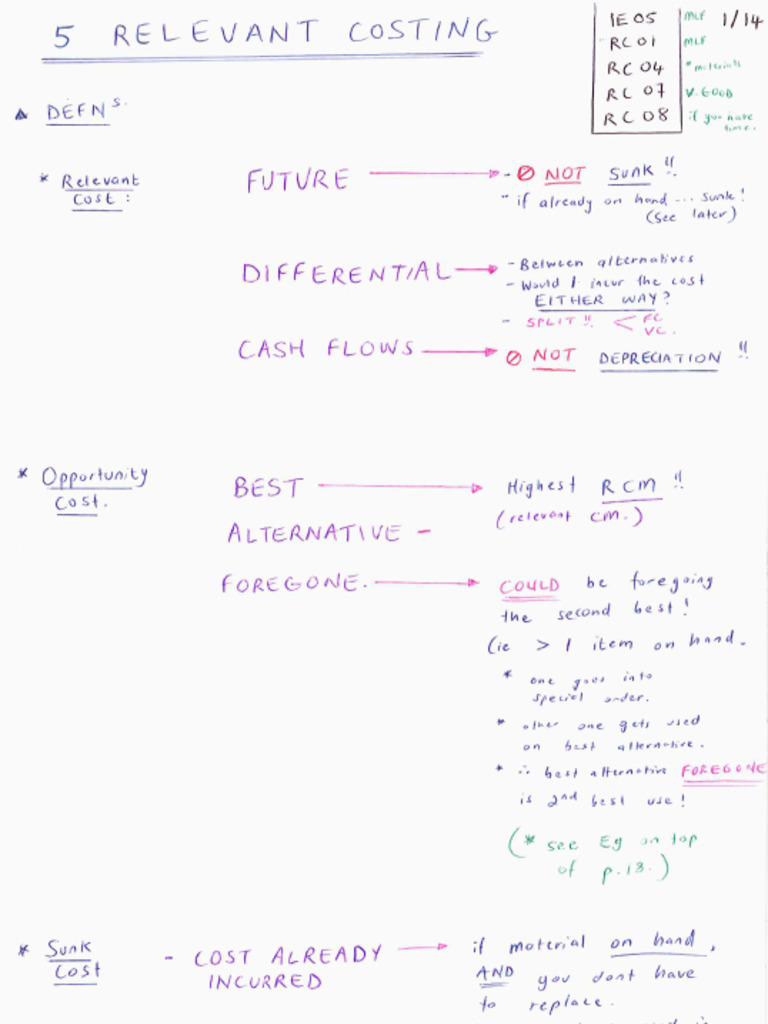 5 RELEVANT COSTING
IE 05 MLF 1/14
RC 01 MLF
RC 04 * materials
RC 07 V. GOOD
RC 08 if you have time.
DEFN s.
* Relevant Cost:
FUTURE
- NOT SUNK !!
- if already on hand ... sunk!
(see later)
DIFFERENTIAL
- Between alternatives
- Would I incur the cost
EITHER WAY?
- SPLIT !! < FC
VC.
CASH FLOWS
NOT DEPRECIATION !!
* Opportunity Cost.
BEST
Highest RCM !!
(relevant cm.)
ALTERNATIVE -
FOREGONE.
COULD be foregoing
the second best!
(ie > 1 item on hand.
* one goes into
special order.
* other one gets used
on best alternative.
* ∴ best alternative FOREGONE
is 2nd best use!
(* see Eg on top
of p.13.)
* Sunk Cost
- COST ALREADY
INCURRED
if material on hand,
AND you dont have
to replace.